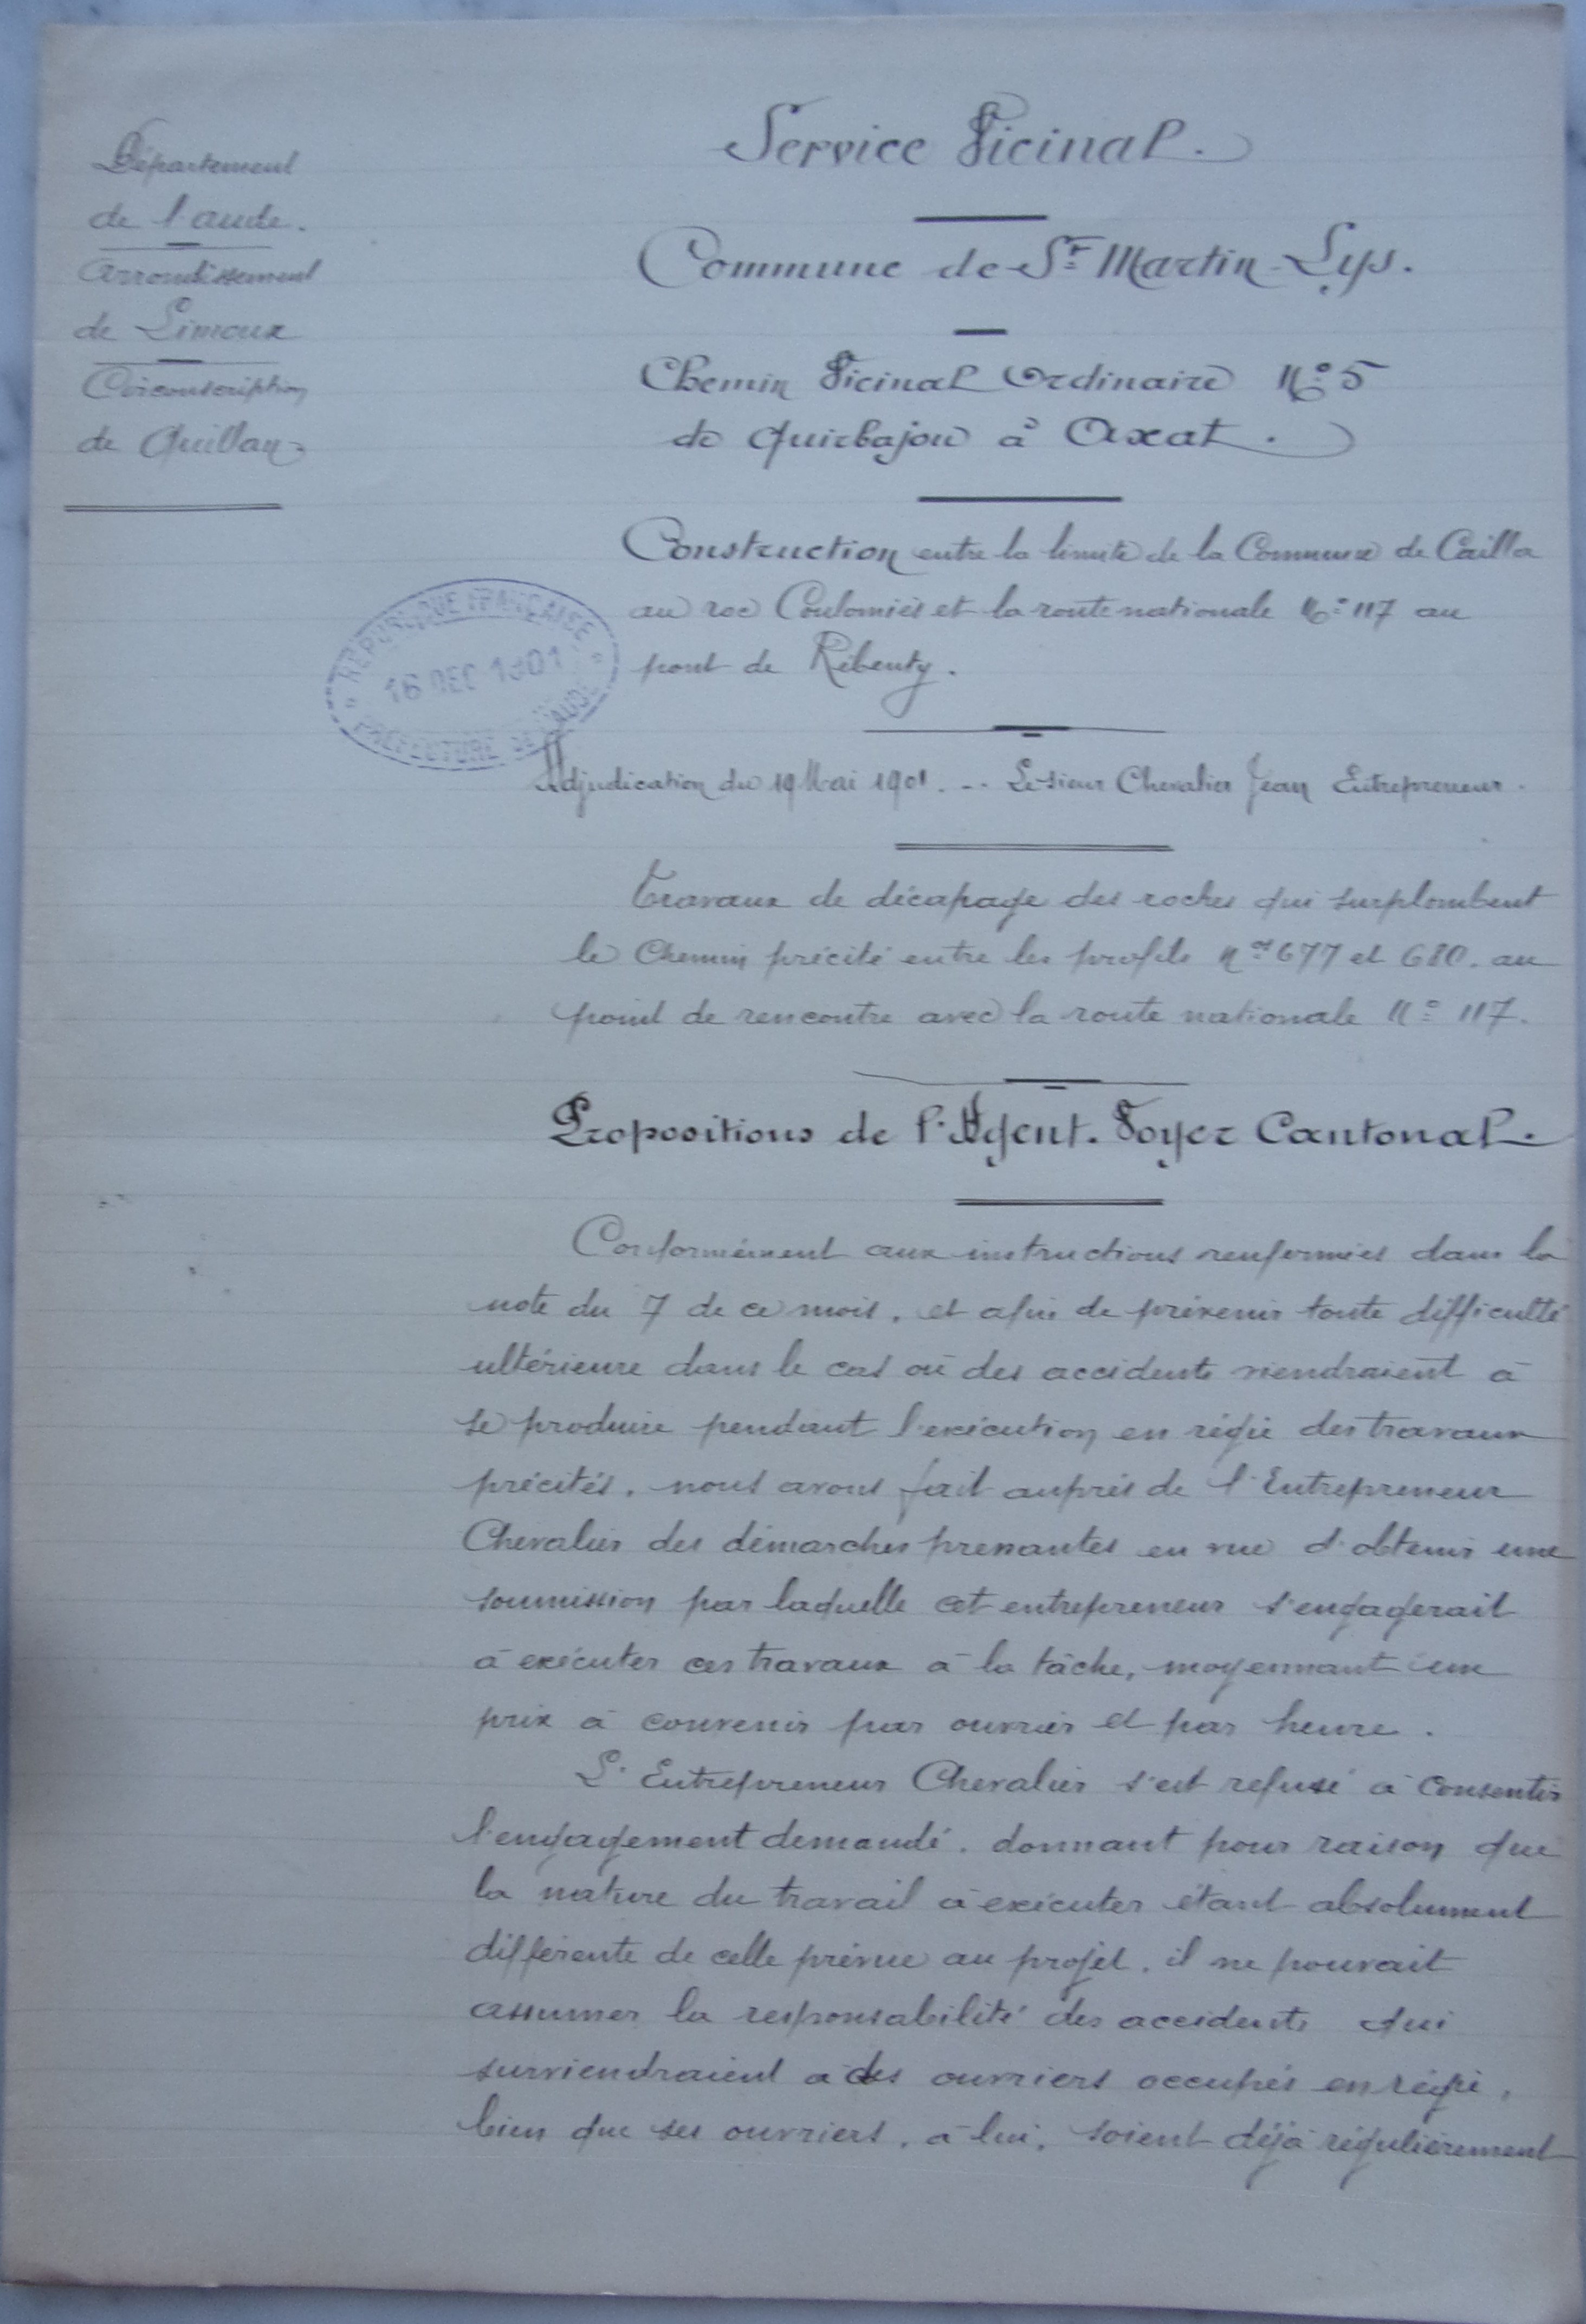 Département
de l'aude.
Arrondissement
de Limoux
Circonscription
de Quillan
Service Vicinal.
Commune de St Martin-Lys.
Chemin Vicinal Ordinaire No 5
de Quirbajou à Axat.
Construction entre la limite de la Commune de Cailla
au roc Coulomiès et la route nationale No 117 au
pont de Rébenty.
RÉPUBLIQUE FRANÇAISE
16 DEC 1901
PRÉFECTURE DE L'AUDE
Adjudication du 19 Mai 1901. -- Le sieur Chevalier Jean Entrepreneur.
Travaux de décapage des roches qui surplombent
le Chemin précité entre les profils nos 677 et 680. au
point de rencontre avec la route nationale No 117.
Propositions de l'Agent-Voyer Cantonal.
Conformément aux instructions renfermées dans la
note du 7 de ce mois, et afin de prévenir toute difficulté
ultérieure dans le cas où des accidents viendraient à
se produire pendant l'exécution en régie des travaux
précités, nous avons fait auprès de l'Entrepreneur
Chevalier des démarches pressantes en vue d'obtenir une
soumission par laquelle cet entrepreneur s'engagerait
à exécuter ces travaux à la tâche, moyennant un
prix à convenir par ouvrier et par heure.
L'Entrepreneur Chevalier s'est refusé à consentir
l'engagement demandé, donnant pour raison que
la nature du travail à exécuter étant absolument
différente de celle prévue au projet, il ne pouvait
assumer la responsabilité des accidents qui
surviendraient à des ouvriers occupés en régie,
bien que ses ouvriers, à lui, soient déjà régulièrement